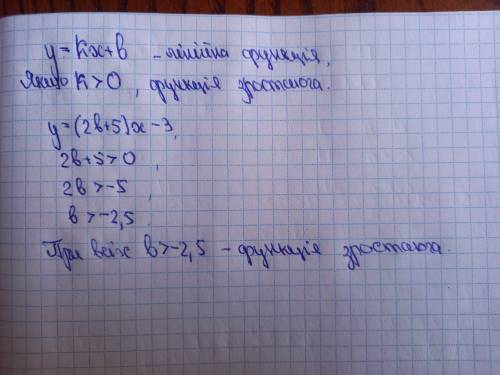 y=kx+b – лінійна функція,
Якщо k>0, функція зростаюча.
y=(2b+5)x-3,
2b+5>0,
2b>-5,
b>-2,5.
При всіх b>-2,5 – функція зростаюча.